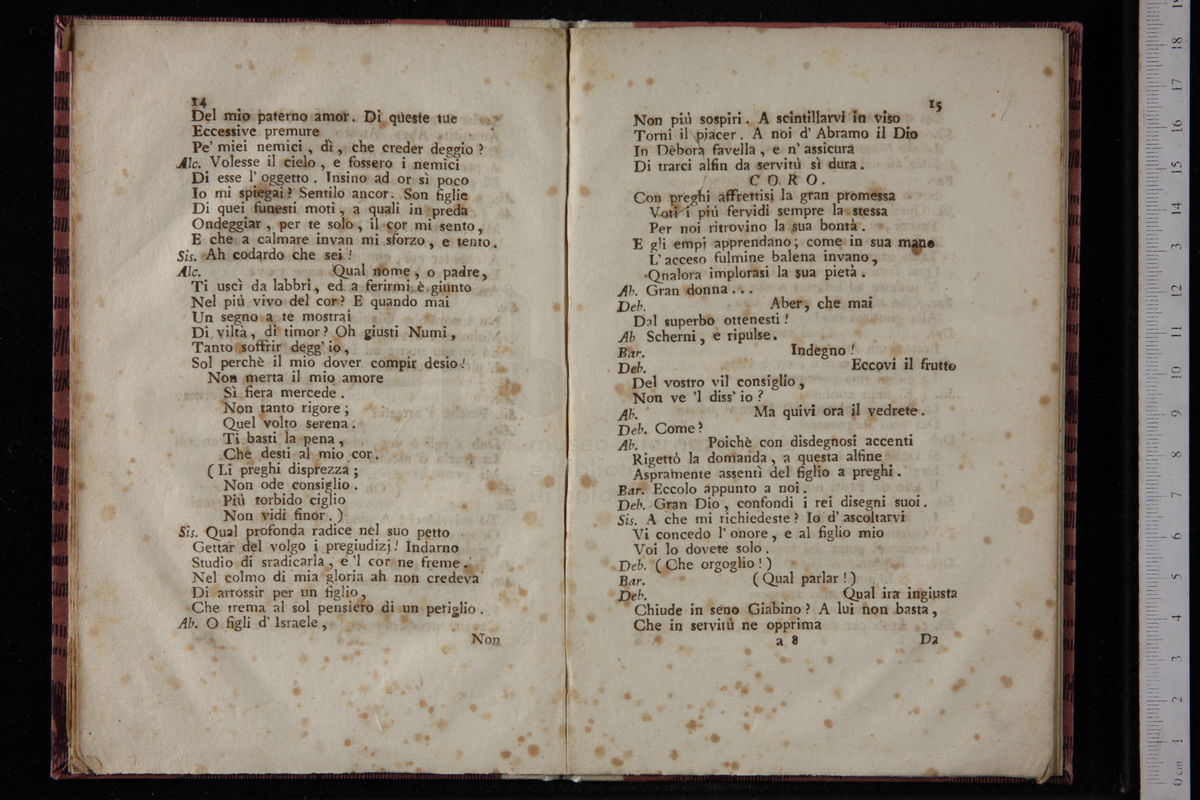 14
Del mio paterno amor. Di queste tue
Eccessive premure
Pe' miei nemici, dì, che creder deggio?
Alc. Volesse il cielo, e fossero i nemici
Di esse l'oggetto. Insino ad or sì poco
Io mi spiegai? Sentilo ancor. Son figlie
Di quei funesti moti, a quali in preda
Ondeggiar, per te solo, il cor mi sento,
E che a calmare invan mi sforzo, e tento.
Sis. Ah codardo che sei!
Alc. Qual nome, o padre,
Ti uscì da labbri, ed a ferirmi è giunto
Nel più vivo del cor? E quando mai
Un segno a te mostrai
Di viltà, di timor? Oh giusti Numi,
Tanto soffrir degg'io,
Sol perchè il mio dover compir desio!
Non merta il mio amore
Sì fiera mercede.
Non tanto rigore;
Quel volto serena.
Ti basti la pena,
Che desti al mio cor.
(Li preghi disprezza;
Non ode consiglio.
Più torbido ciglio
Non vidi finor.)
Sis. Qual profonda radice nel suo petto
Gettar del volgo i pregiudizj! Indarno
Studio di sradicarla, e 'l cor ne freme.
Nel colmo di mia gloria ah non credeva
Di arrossir per un figlio,
Che trema al sol pensiero di un periglio.
Ab. O figli d'Israele,
Non
15
Non più sospiri. A scintillarvi in viso
Torni il piacer. A noi d'Abramo il Dio
In Debora favella, e n'assicura
Di trarci alfin da servitù sì dura.
CORO.
Con preghi affrettisi la gran promessa
Voti i più fervidi sempre la stessa
Per noi ritrovino la sua bontà.
E gli empi apprendano; come in sua mano
L'acceso fulmine balena invano,
Qnalora implorasi la sua pietà.
Ab. Gran donna...
Deb. Aber, che mai
Dal superbo ottenesti!
Ab Scherni, e ripulse.
Bar. Indegno!
Deb. Eccovi il frutto
Del vostro vil consiglio,
Non ve 'l diss'io?
Ab. Ma quivi ora il vedrete.
Deb. Come?
Ab. Poichè con disdegnosi accenti
Rigettò la domanda, a questa alfine
Aspramente assentì del figlio a preghi.
Bar. Eccolo appunto a noi.
Deb. Gran Dio, confondi i rei disegni suoi.
Sis. A che mi richiedeste? Io d'ascoltarvi
Vi concedo l'onore, e al figlio mio
Voi lo dovete solo.
Deb. (Che orgoglio!)
Bar. (Qual parlar!)
Deb. Qual ira ingiusta
Chiude in seno Giabino? A lui non basta,
Che in servitù ne opprima
a 8 Da